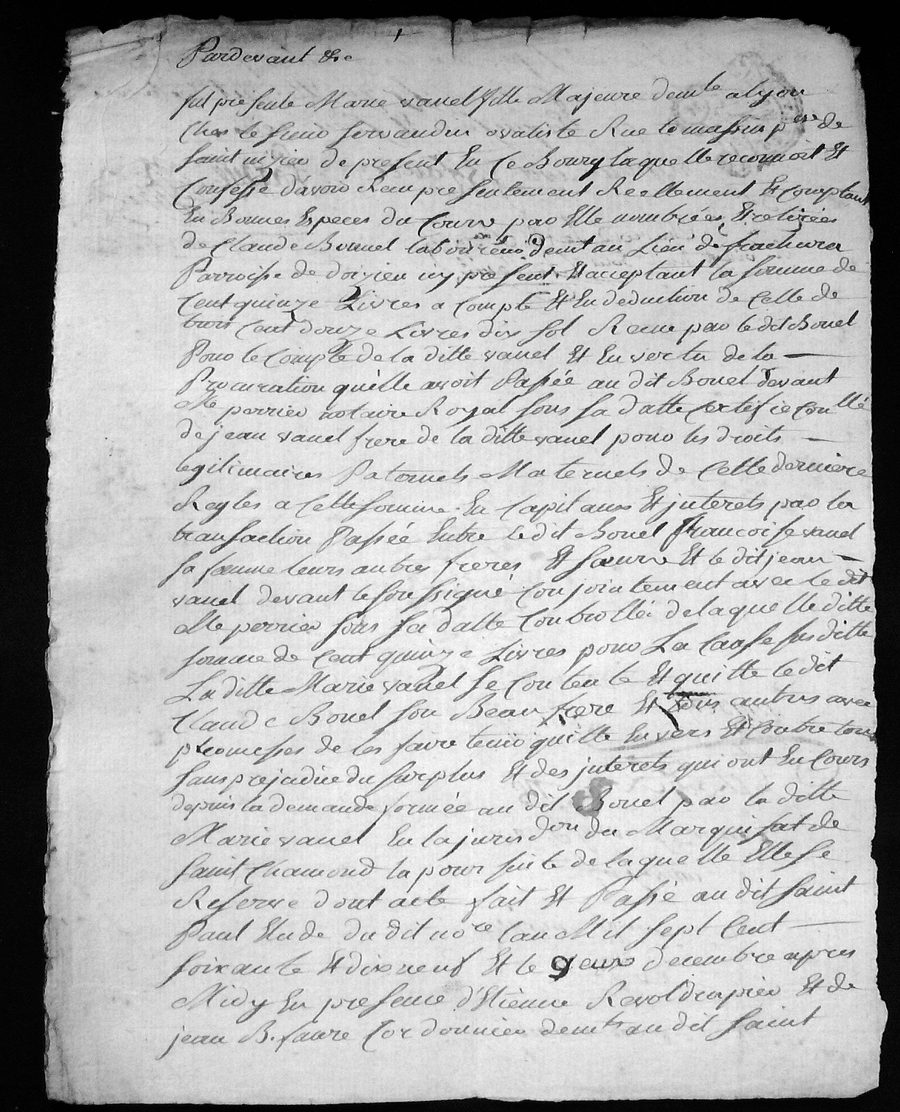 Pardevant &c
fut presente Marie vanel fille Majeure demte a lyon
Ches le sieur servandin ovaliste Rue tomassin psse de
saint nizier de present En Ce Bourg laquelle reconnoit Et
Confesse d'avoir Reeu presentement Reellement Et Comptant
En Bonnes Especes du Cours par Elle nombrées Et retirées
de Claude Bonnel laboureur demt au Lieu de frachura
Parroisse de doizieu icy present Et acceptant la somme de
Cent quinze Livres a Compte Et En deduction de Celle de
trois Cent douze Livres dix sol Receue par le dit Bonel
Pour le Compte de la ditte vanel Et En vertu de la
Procuration qu'elle avoit Passée au dit Bonel devant
Me perrier notaire Royal sous sa datte Certifié Conllé
de jean vanel frere de la ditte vanel pour les droits
legitimaires Paternels Maternels de Cette derniere
Regles a Cette somme En Capitaux Et interets par la
transaction Passée Entre le dit Bonel francoise vanel
sa femme leurs autres freres Et sœurs Et le dit jean
vanel devant le soussigné Conjointement avec le dit
Me perrier sous sa datte Controllée de laquelle ditte
somme de Cent quinze Livres pour La Cause susditte
La ditte Marie vanel se Contente Et quitte le dit
Claude Bonel son Beau frere Et tous autres avec
promesses de les faire tenir quitte Envers Et Contre tous
sans prejudice du surplus Et des interets qui ont Eu Cours
depuis la demande formée au dit Bonel par la ditte
Marie vanel En la jurisdon du Marquisat de
saint Chamond la poursuite de laquelle Elle se
Reserve dont acte fait Et Passé au dit saint
Paul Etude du dit nore l'an Mil sept Cent
soixante Et dix neuf Et le 9eme decembre apres
Midy En presence d'Etienne Revol drapier Et de
jean B. faure Cordonnier demts au dit saint